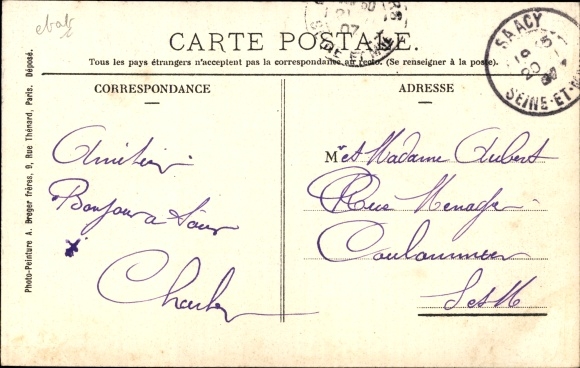 CARTE POSTALE.
Tous les pays étrangers n'acceptent pas la correspondance au recto. (Se renseigner à la poste).
CORRESPONDANCE
Amitiés
Bonjour à tous
Charles
ADRESSE
Mr et Madame Aubert
Rue Menager
Coulommiers
S et M
SAACY
SEINE-ET-M
Photo-Peinture A. Breger Frères, 9, Rue Thénard, Paris. Déposé.